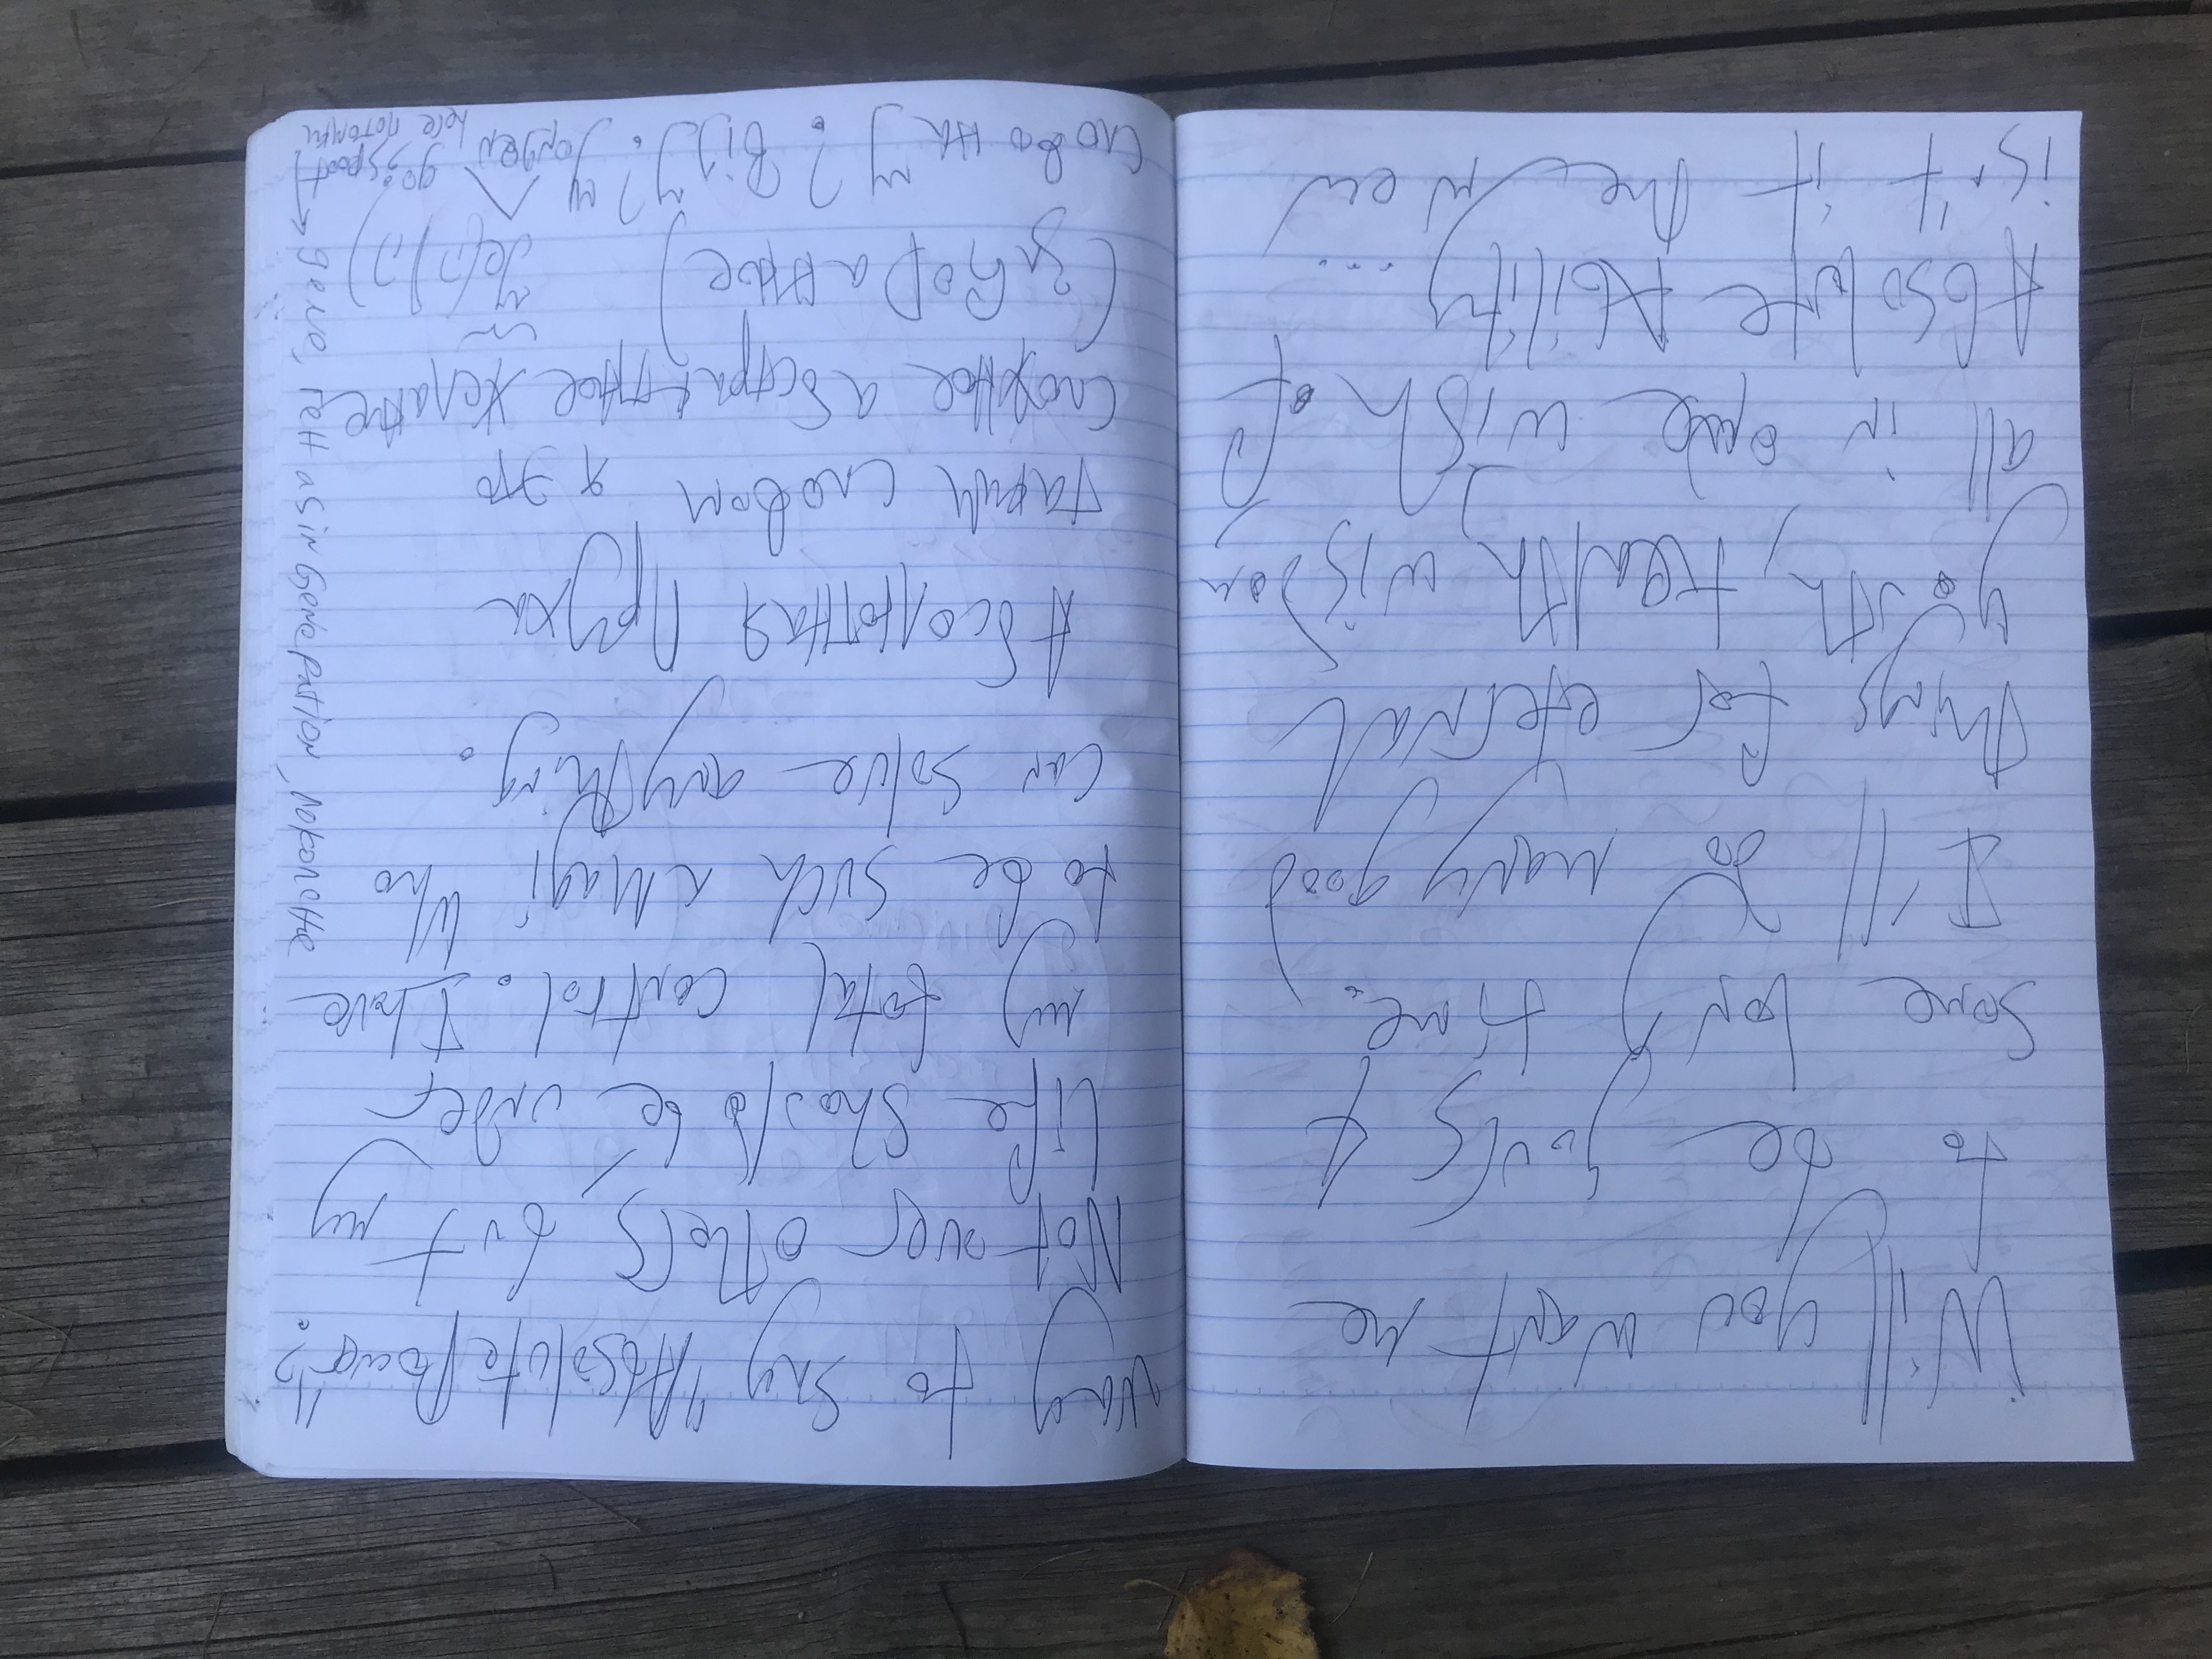 Will you want me
to be yours 4
some long time.
I'll do many good
things for eternal
youth, health, wisdom,
all in one wish. of
Absolute Ability...
isn't it the new
way to say "Absolute Power"?
Not over others but my
life should be under
my total control. I have
to be such a Magi who
can solve anything.
Абсолютная Пруха
таким словом я это
сложное абстрактное желание
слово на У? Yongen go:s root
here потомки
gene, ген as in Generation, поколение